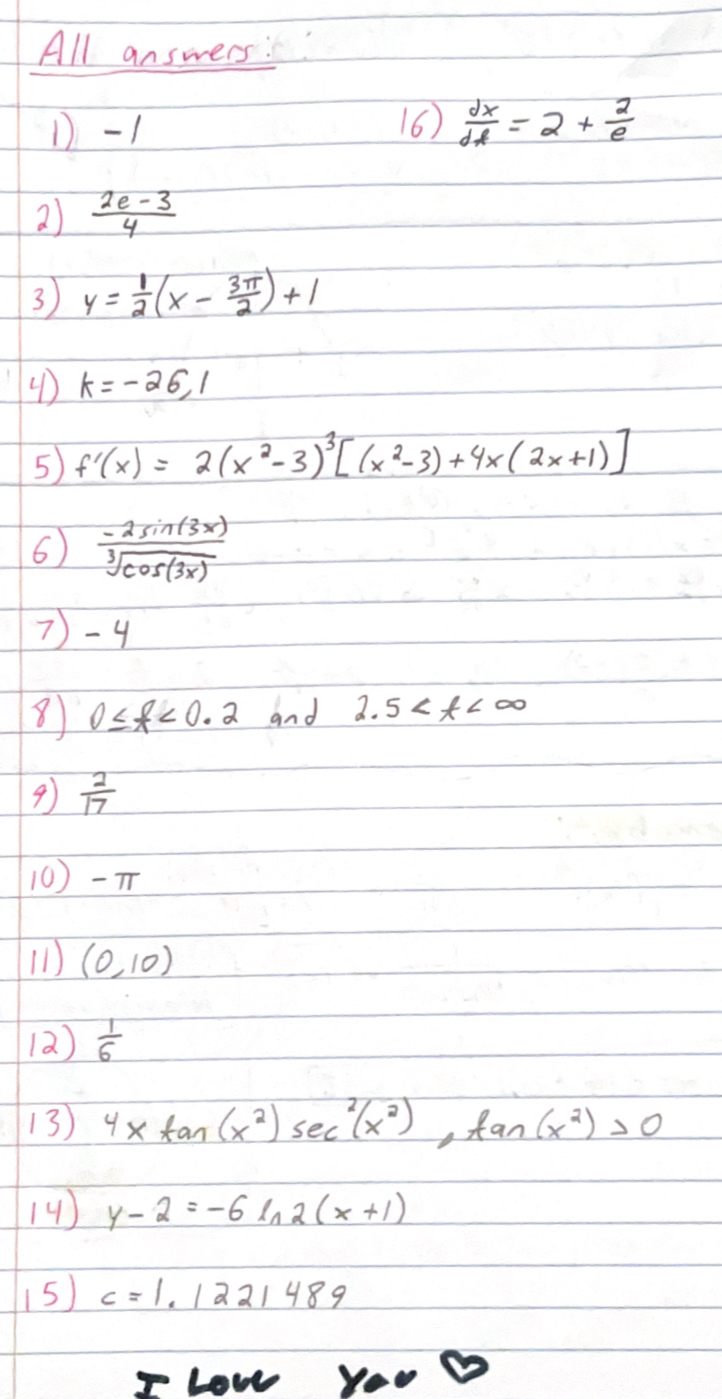 All answers:
1) -1
16) dx/dt = 2 + 2/e
2) (2e-3)/4
3) y = 1/2(x - 3π/2) + 1
4) k = -26, 1
5) f'(x) = 2(x²-3)³[(x²-3)+4x(2x+1)]
6) -2sin(3x)/∛cos(3x)
7) -4
8) 0≤t<0.2 and 2.5<t<∞
9) 2/17
10) -π
11) (0,10)
12) 1/6
13) 4x tan(x²) sec²(x²), tan(x²) > 0
14) y-2 = -6 ln2(x+1)
15) c = 1.1221489
I Love You ♡